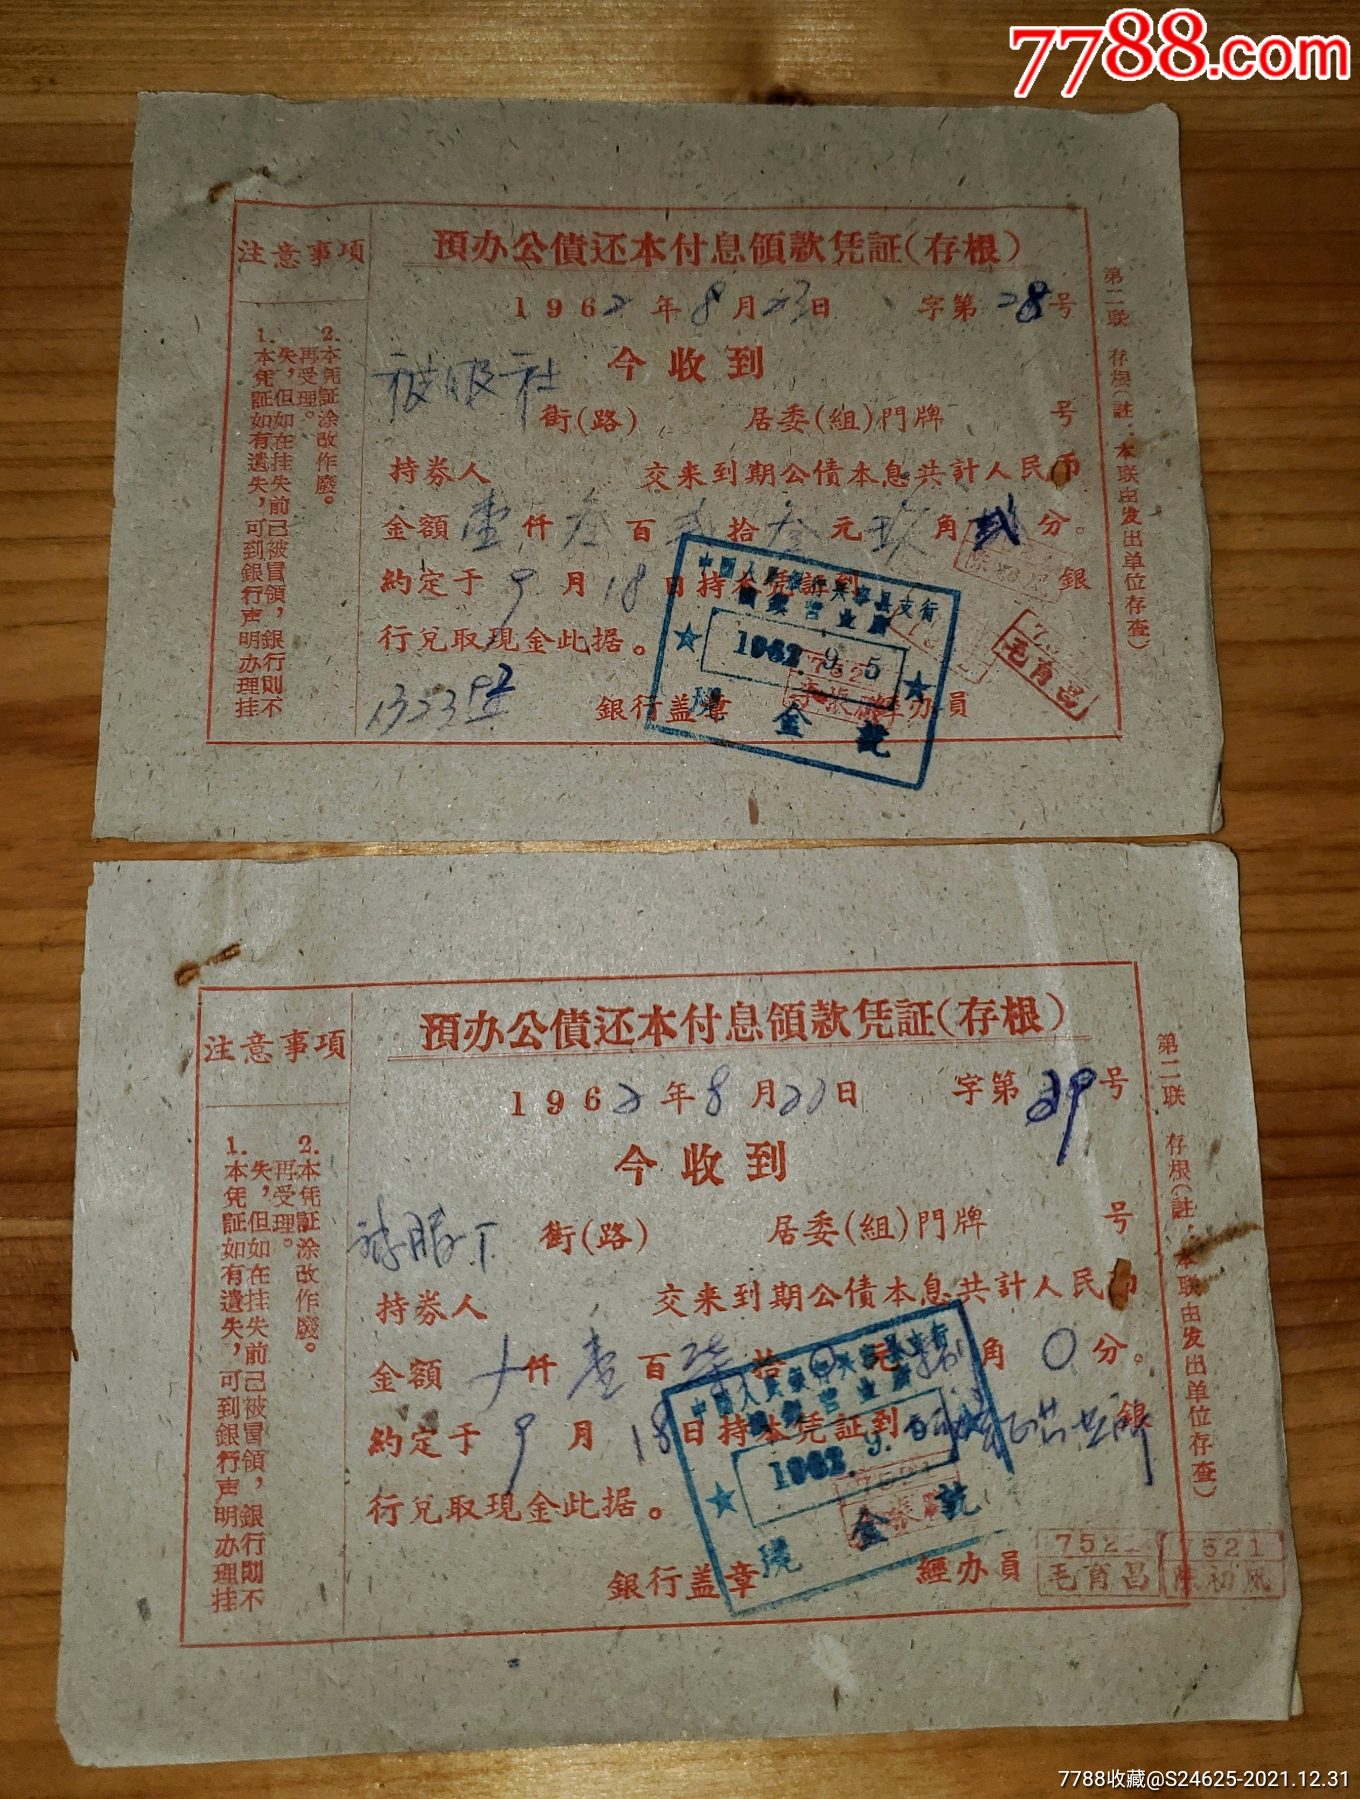 7788.com
預办公債还本付息領款凭証(存根)
1962年8月23日 字第28号
今收到
被服社 街(路) 居委(組)門牌 号
持券人 交来到期公債本息共計人民币
金額壹仟叁百弍拾叁元玖角弍分。
約定于9月18日持本凭証到 銀
行兌取現金此据。
1323 92
銀行盖章 經办員
注意事項
1.本凭証如有遺失,可到銀行声明办理挂
失,但如在挂失前已被冒領,銀行則不
再受理。
2.本凭証涂改作廢。
第二联 存根(註:本联由发出单位存查)
中國人民銀行興寧县支行
營业
1962.9.5
現金訖
752
毛育昌
預办公債还本付息領款凭証(存根)
1962年8月22日 字第29号
今收到
街(路) 居委(組)門牌 号
持券人 交来到期公債本息共計人民币
金額 仟壹百柒拾0元捌角0分。
約定于9月18日持本凭証到 銀
行兌取現金此据。
銀行盖章 經办員
注意事項
1.本凭証如有遺失,可到銀行声明办理挂
失,但如在挂失前已被冒領,銀行則不
再受理。
2.本凭証涂改作廢。
第二联 存根(註:本联由发出单位存查)
中國人民銀行興寧县支行
營业
1962.9.5
現金訖
7521
毛育昌
7521
陈初凤
7788收藏@S24625-2021.12.31